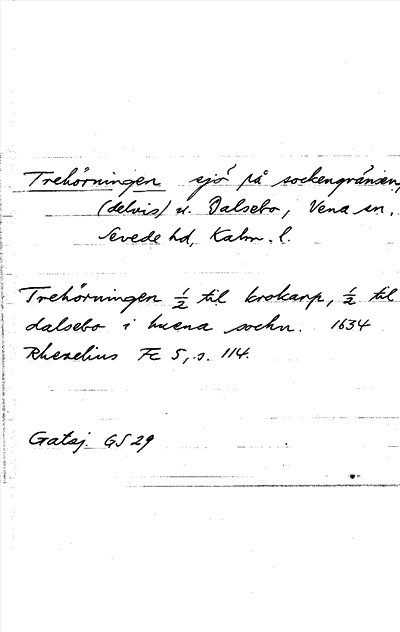 Trehörningen sjö på sockengränsen,
(delvis) u. Dalsebo, Vena sn,
Sevede hd, Kalm. l.
Trehörningen ½ til krokarp, ½ til
dalsebo i huena sochn. 1634
Rhezelius Fc 5, s. 114.
Gatsj. GS 29